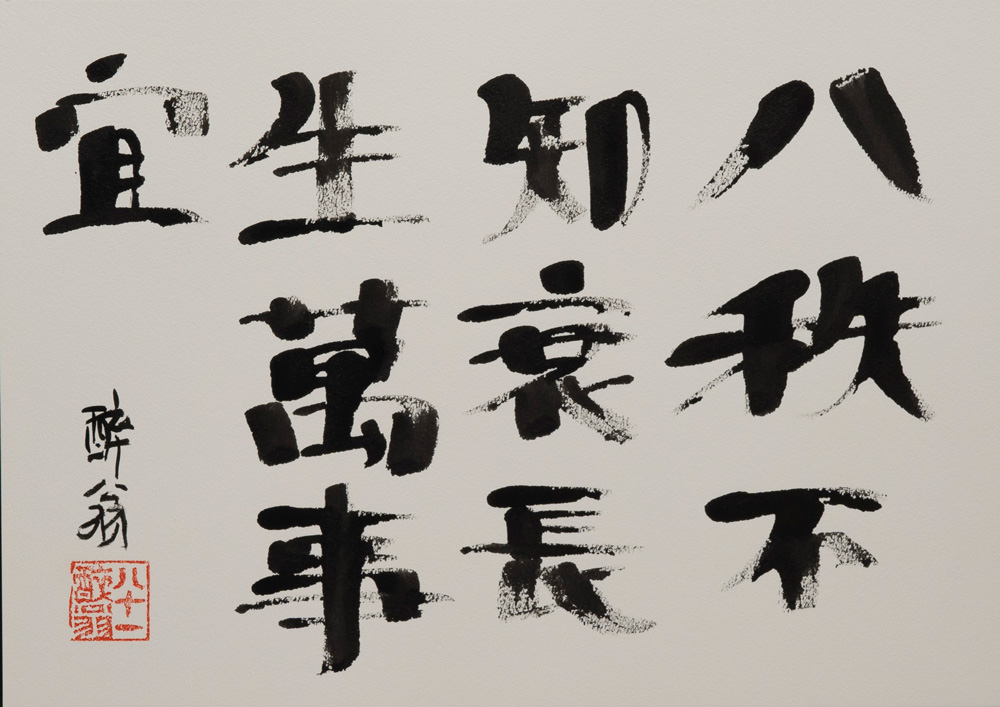 八秩不
知衰長
生萬事
宜
醉翁
八十一
醉翁